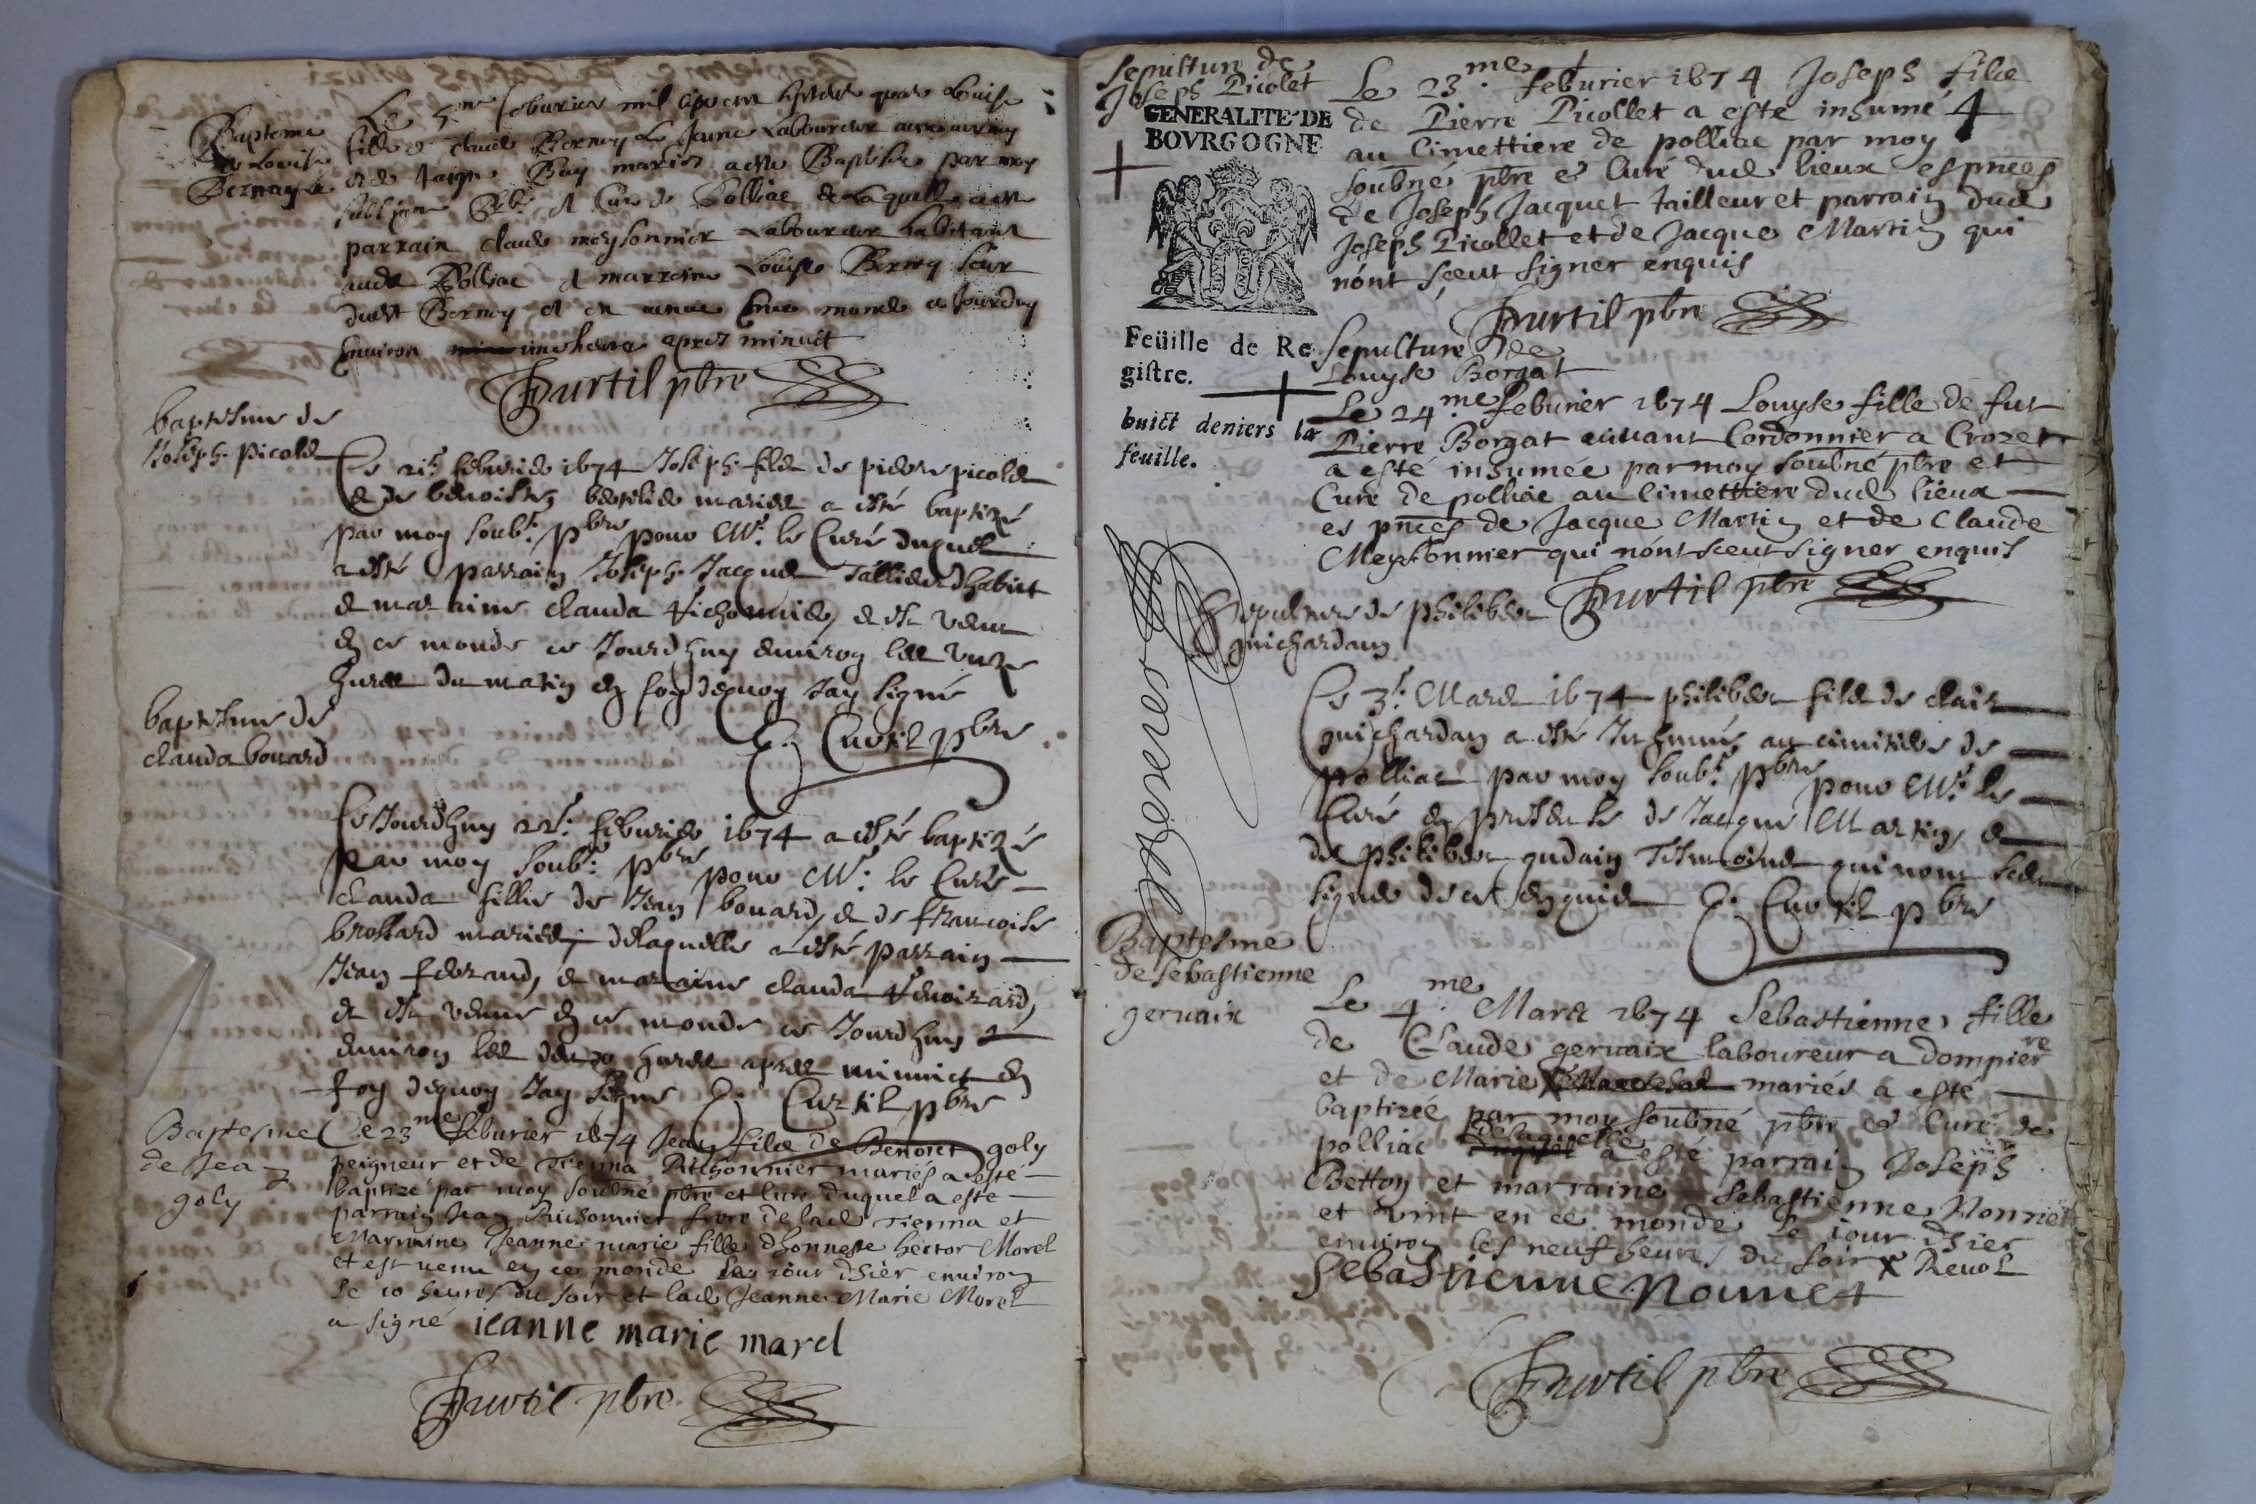 Bapteme
de Louise
Bernay
Le 5me feburier mil six cent septante quatre Louise
fille a Claude Bernoy le Jeune Laboureur
et de Buy mariés a este Baptisée par moy
subsigne Pbr et Curé de Polliac de Laquelle a este
parrain claude meysonnier Laboureur habitant
audt Polliac et marraine Louise Bernoy seur
dudt Bernoy et en ce monde a Jourdhuy
Environ une heure apres minuit
Curtil pbre
baptesme de
Joseph Picolet
Ce 21e feburier 1674 Joseph fils de pierre picolet
et de benoiste mariez a esté baptizé
par moy soub.é pbre pour Mr. le Curé duquel
a esté parrain Joseph Jacquet Tallieur dhabict
et maraine clauda et est venu
en ce monde ce Jourdhuy environ les unze
hures du matin en foy dequoy Jay signé
C. Curtil pbre
baptesme de
clauda bouard
Ce Jourdhuy 22e. feburier 1674 a esté baptizée
par moy soub.é pbre pour Mr. le Curé
clauda fillie de Jean bouard, et de francoise
brossard mariez, delaquelle a esté parrain
Jean feraud, et maraine clauda
et est venue en ce monde ce Jourdhuy
environ les deux hures apres minuict en
foy dequoy Jay signe C. Curtil pbre
Baptesme
de Jean
goly
Ce 23me feburier 1674 Jean filz de Benoict goly
peigneur et de Tienna Pitthonnier mariés a este
baptizé par moy soubné pbre et Curé duquel a este
parrain Jean Pitthonnier frere de lad Tienna et
Marraine Jeanne marie fille dhonneste hector Morel
et est venu en ce monde le jour dhier environ
le 10 heures du soir et lad Jeanne Marie Morel
a signé ieanne marie marel
Curtil pbre
sepulture de
Joseph Picolet
GENERALITE DE
BOVRGOGNE
Feüille de Re
gistre.
huict deniers la
feuille.
4
Le 23me. feburier 1674 Joseph filz
de Pierre Picollet a esté inhumé
au Cimettiere de polliac par moy
soubné pbre et Curé dud lieux es pnces
de Joseph Jacquet tailleur et parrain dud
Joseph Picollet et de Jacque Martin qui
nónt sceut signer enquis
Curtil pbre
Sepulture de
Louyse Borgat
Le 24.me feburier 1674 Louyse fille de fut
Pierre Borgat viuant Cordonnier a Crozet
a esté inhumée par moy soubné pbre et
Curé de polliac au Cimettiere dud lieux
es pnces de Jacque Martin et de Claude
Meyssonnier qui nónt sceut signer enquis
Curtil pbre
Sepulture de philibert
guichardan
Ce 3e. Mars 1674 philibert fils de clair
guichardan a esté Inhumé au cimitiere de
polliac par moy soub.é pbre pour Mr. le
Curé en presence de Jacque Martin, et
de philibert gudain Tesmoins qui nont sceu
signer de ce enquis C. Curtil pbre
Baptesme
de sebastienne
geruaix
Le 4.me Mars 1674 Sebastienne fille
de Claude geruaix laboureur a dompierre
et de Marie X mariés a esté
baptizée par moy soubné pbre et Curé de
polliac delaquelle a esté parrain Joseph
Betton et marraine Sebastienne Nonnet
et vint en ce monde le iour dhier
enuiron les neuf heures du soir X Reuol
Sebastienne Nonnet
Curtil pbre